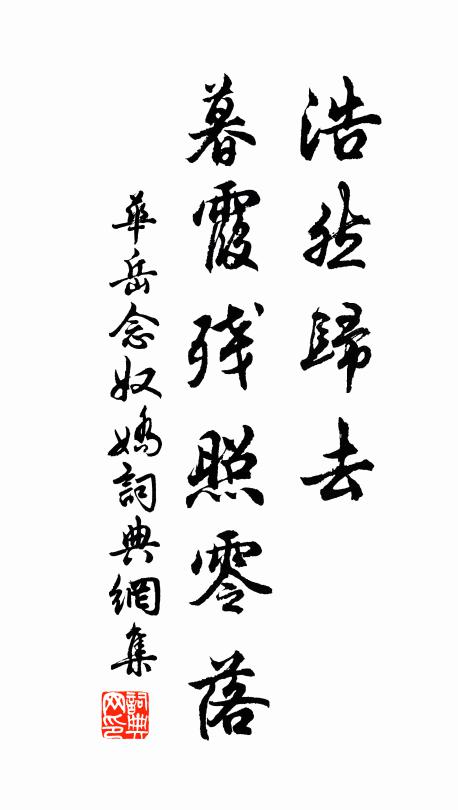 浩然歸去
暮霞残照零落
華岳念奴嬌詞典網集
詞典
网印